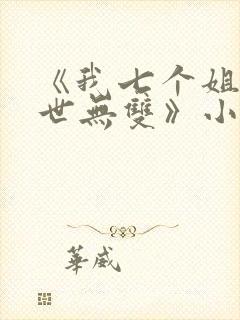 《我七个姐
世無雙》小
華威